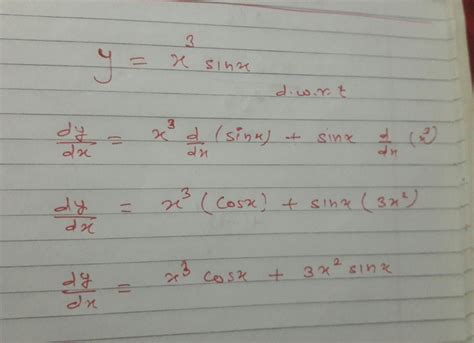 y = x³ sinx
d.w.r.t
dy/dx = x³ d/dx (sinx) + sinx d/dx (x³)
dy/dx = x³ (cosx) + sinx (3x²)
dy/dx = x³ cosx + 3x² sinx